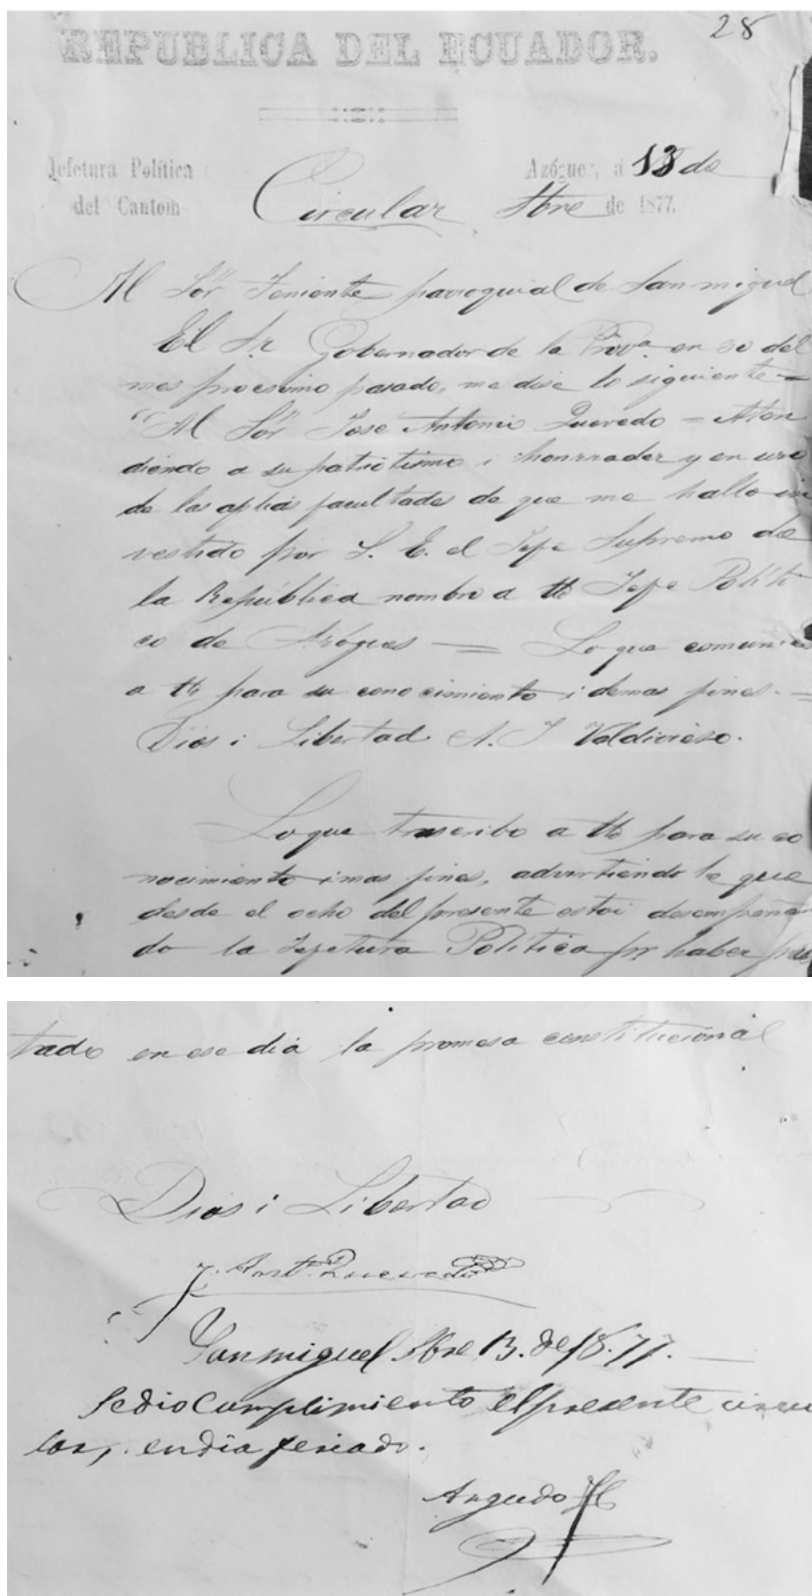 28
REPUBLICA DEL ECUADOR.
Jefetura Política
del Canton
Azógues, a 13 de
Circular bre de 1877.
Al Sor Teniente parroquial de Sanmiguel
El Sr Gobernador de la Prova en 30 del
mes procsimo pasado, me dise lo siguiente =
"Al Sor José Antonio Quevedo = Aten
diendo a su patriotismo i honrrades y en uso
de las aplias facultades de que me hallo in
vestido por S. E. el Jefe Supremo de
la República nombro a U Jefe Políti
co de Azógues = Lo que comunico
a U para su conocimiento i demas fines. =
Dios i Libertad A. J Valdivieso.
Lo que trascribo a U para su co
nocimiento i mas fines, advirtiendo le que
desde el ocho del presente estoi desempeñan
do la Jefetura Política pr haber pres
tado en ese dia la promesa constitucional
Dios i Libertad
J. Anto Quevedo
Sanmiguel bre 13. de 18.77.
Sedio Cumplimiento elpresente circu
lar, en dia feriado.
Argudo